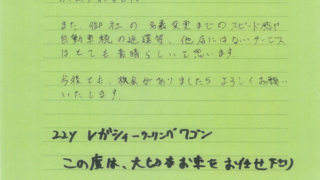 また、御社の名義変更までのスピード感や
自動車税の返還等、他店にはないサービス
はとても素晴らしいと思います。
今後とも、機会がありましたらよろしくお願い
いたします。
22y レガシィーツーリングワゴン
この度は、大切なお車をお任せ下